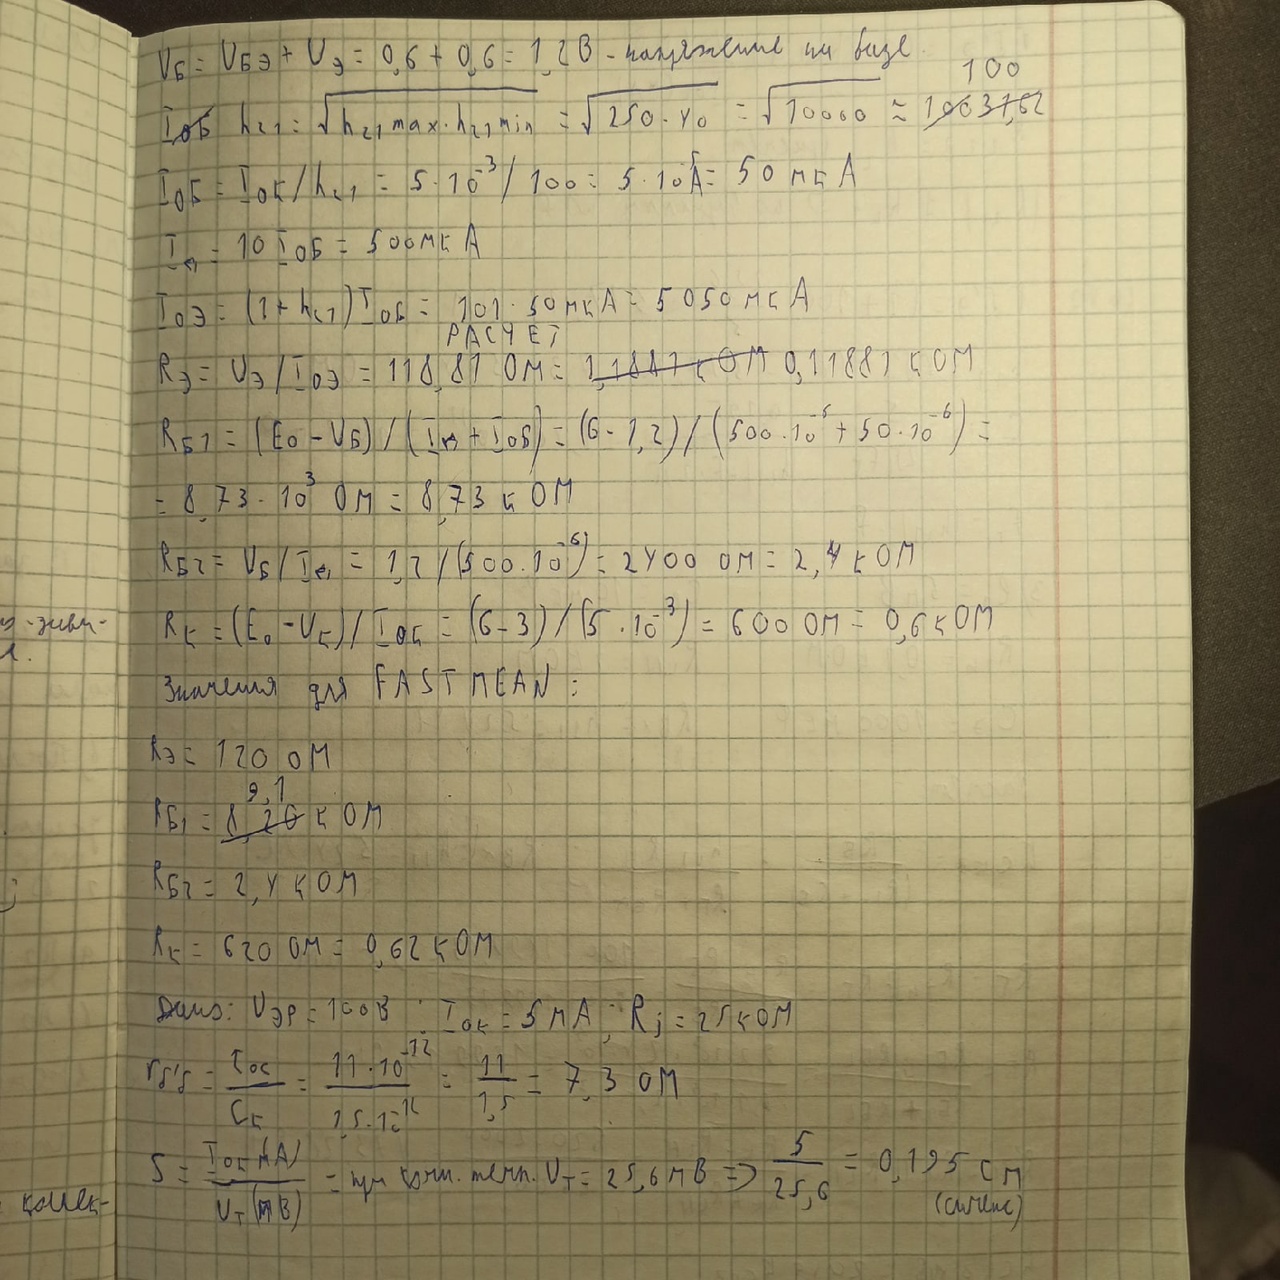 U_Б = U_БЭ + U_Э = 0,6 + 0,6 = 1,2 В - напряжение на базе
100
h_21 = √(h_21 max · h_21 min) = √(250 · 40) = √10000 ≈ 1003162
I_0Б = I_0К / h_21 = 5 · 10^-3 / 100 = 5 · 10^-5 А = 50 мкА
I_д = 10 I_0Б = 500 мкА
I_0Э = (1 + h_21) I_0Б = 101 · 50 мкА = 5050 мкА
РАСЧЕТ
R_Э = U_Э / I_0Э = 118,81 ОМ = 1,1881 кОМ 0,11881 кОМ
R_Б1 = (E_0 - U_Б) / (I_д + I_0Б) = (6 - 1,2) / (500 · 10^-6 + 50 · 10^-6) =
= 8,73 · 10^3 ОМ = 8,73 кОМ
R_Б2 = U_Б / I_д = 1,2 / (500 · 10^-6) = 2400 ОМ = 2,4 кОМ
з-зави-
R_К = (E_0 - U_К) / I_0К = (6 - 3) / (5 · 10^-3) = 600 ОМ = 0,6 кОМ
Значения для FASTMEAN :
R_Э = 120 ОМ
9,1
R_Б1 = 8,20 кОМ
R_Б2 = 2,4 кОМ
R_К = 620 ОМ = 0,62 кОМ
Дано: U_ЭР = 100В ; I_0К = 5 мА ; R_i = 25 кОМ
r_б'б = τ_ОС / C_К = 11 · 10^-12 / 1,5 · 10^-12 = 11 / 1,5 = 7,3 ОМ
S = I_0К (мА) / U_T (мВ) = при комн. темп. U_T = 25,6 мВ => 5 / 25,6 = 0,195 См
коллек-
(сименс)